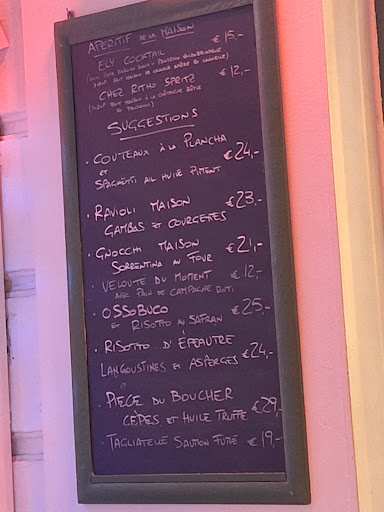 APERITIF DE LA MAISON
ELY COCKTAIL €15,-
CHEZ RITHO SPRITZ €12,-
SUGGESTIONS
• COUTEAUX À LA PLANCHA
ET €24,-
SPAGHETTI AIL HUILE PIMENT
• RAVIOLI MAISON €23,-
GAMBAS ET COURGETTES
• GNOCCHI MAISON €21,-
SORRENTINA AU FOUR
• VELOUTE DU MOMENT €12,-
AVEC PAIN DE CAMPAGNE ROTI
• OSSOBUCO €25,-
ET RISOTTO AU SAFRAN
• RISOTTO D'ÉPEAUTRE
LANGOUSTINES ET ASPERGES €24,-
• PIECE DU BOUCHER
CÈPES ET HUILE TRUFFE €29,-
• TAGLIATELLE SAUMON FUMÉ €19,-